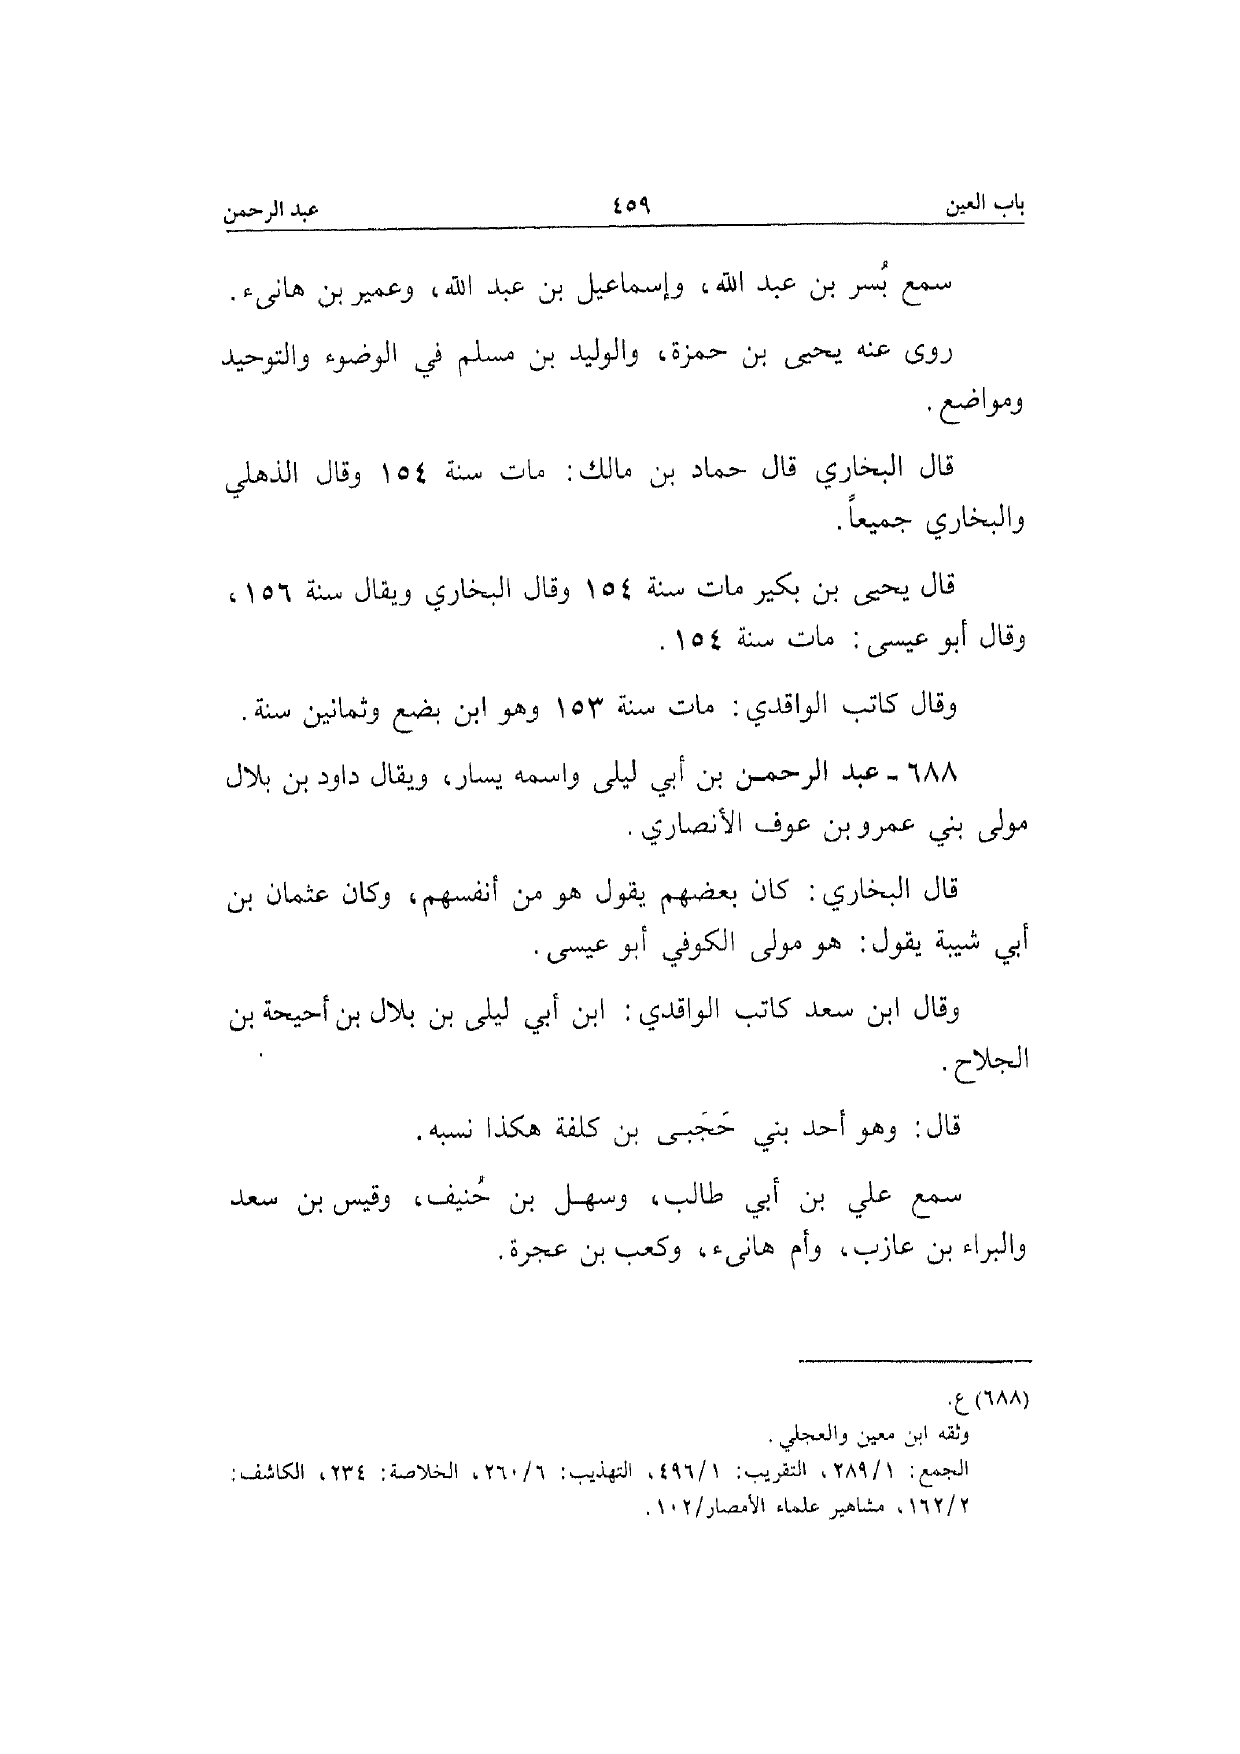 باب العين ٤٥٩ عبد الرحمن
سمع بُسر بن عبد الله، وإسماعيل بن عبد الله، وعمير بن هانىء.
روى عنه يحيى بن حمزة، والوليد بن مسلم في الوضوء والتوحيد
ومواضع.
قال البخاري قال حماد بن مالك: مات سنة ١٥٤ وقال الذهلي
والبخاري جميعاً.
قال يحيى بن بكير مات سنة ١٥٤ وقال البخاري ويقال سنة ١٥٦،
وقال أبو عيسى: مات سنة ١٥٤.
وقال كاتب الواقدي: مات سنة ١٥٣ وهو ابن بضع وثمانين سنة.
٦٨٨ - عبد الرحمن بن أبي ليلى واسمه يسار، ويقال داود بن بلال
مولى بني عمرو بن عوف الأنصاري.
قال البخاري: كان بعضهم يقول هو من أنفسهم، وكان عثمان بن
أبي شيبة يقول: هو مولى الكوفي أبو عيسى.
وقال ابن سعد كاتب الواقدي: ابن أبي ليلى بن بلال بن أحيحة بن
الجلاح.
قال: وهو أحد بني حَجَبى بن كلفة هكذا نسبه.
سمع علي بن أبي طالب، وسهل بن حُنيف، وقيس بن سعد
والبراء بن عازب، وأم هانىء، وكعب بن عجرة.
(٦٨٨) ع.
وثقه ابن معين والعجلي.
الجمع: ٢٨٩/١، التقريب: ٤٩٦/١، التهذيب: ٢٦٠/٦، الخلاصة: ٢٣٤، الكاشف:
١٦٢/٢، مشاهير علماء الأمصار/١٠٢.